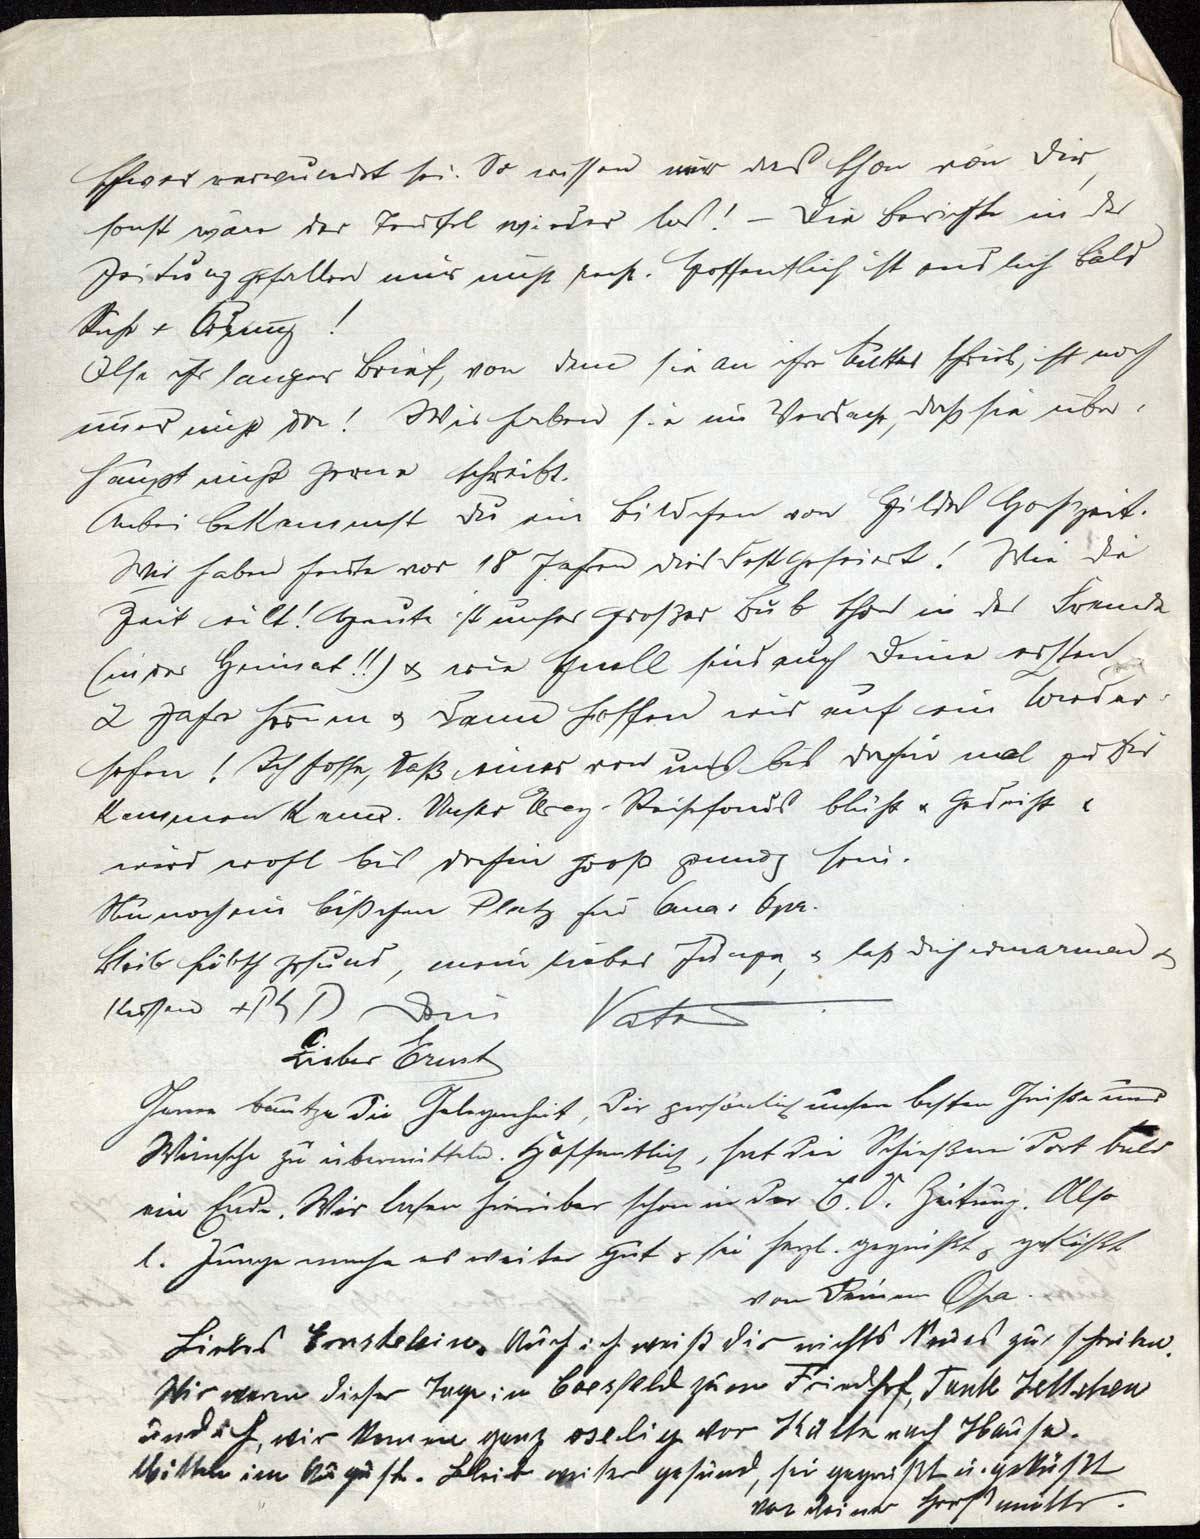 schwer verwundet sei. So wissen wir das schon von Dir,
sonst wäre der Teufel wieder los! – Die Berichte in der
Zeitung gefallen mir nicht recht. Hoffentlich ist endlich bald
Ruhe + Ordnung!
Ilse ihr langer Brief, von dem sie an ihre Mutter schrieb, ist noch
immer nicht da! Wir haben sie im Verdacht, daß sie über-
haupt nicht gerne schreibt.
Anbei bekommst Du ein Bildchen von Hildes Hochzeit.
Wir haben heute vor 18 Jahren dies Fest gefeiert! Wie die
Zeit eilt! Heute ist unser großer Bub schon in der Fremde
(in der Heimat!!) & wie schnell sind auch Deine ersten
2 Jahre herum & dann hoffen wir auf ein Wieder-
sehen! Ich hoffe, daß einer von uns bis dahin mal zu Dir
kommen kann. Unser Erez-Reisefonds blüht & gedeiht &
wird wohl bis dahin groß genug sein.
Nun noch ein bißchen Platz für Oma & Opa.
Bleib hübsch gesund, mein lieber Junge, & laß Dich umarmen &
küssen von Deinem Vater
Lieber Ernst
Gerne benutze die Gelegenheit, Dir persönlich unsere besten Grüße und
Wünsche zu übermitteln. Hoffentlich, hat die Schießerei dort bald
ein Ende. Wir lasen hierüber schon in der C.V. Zeitung. Also
l. Junge mache es weiter gut & sei herzl. gegrüßt & geküßt
von Deinem Opa.
Liebes Ernstelein. Auch ich weiß dir nichts Neues zu schreiben.
Wir waren dieser Tage in Coesfeld zum Friedhof, Tante Settchen
und ich, wir kamen ganz eselig vor Kälte nach Hause.
Mitten im August. Bleib weiter gesund, sei gegrüßt u. geküßt
von deiner Großmutter.